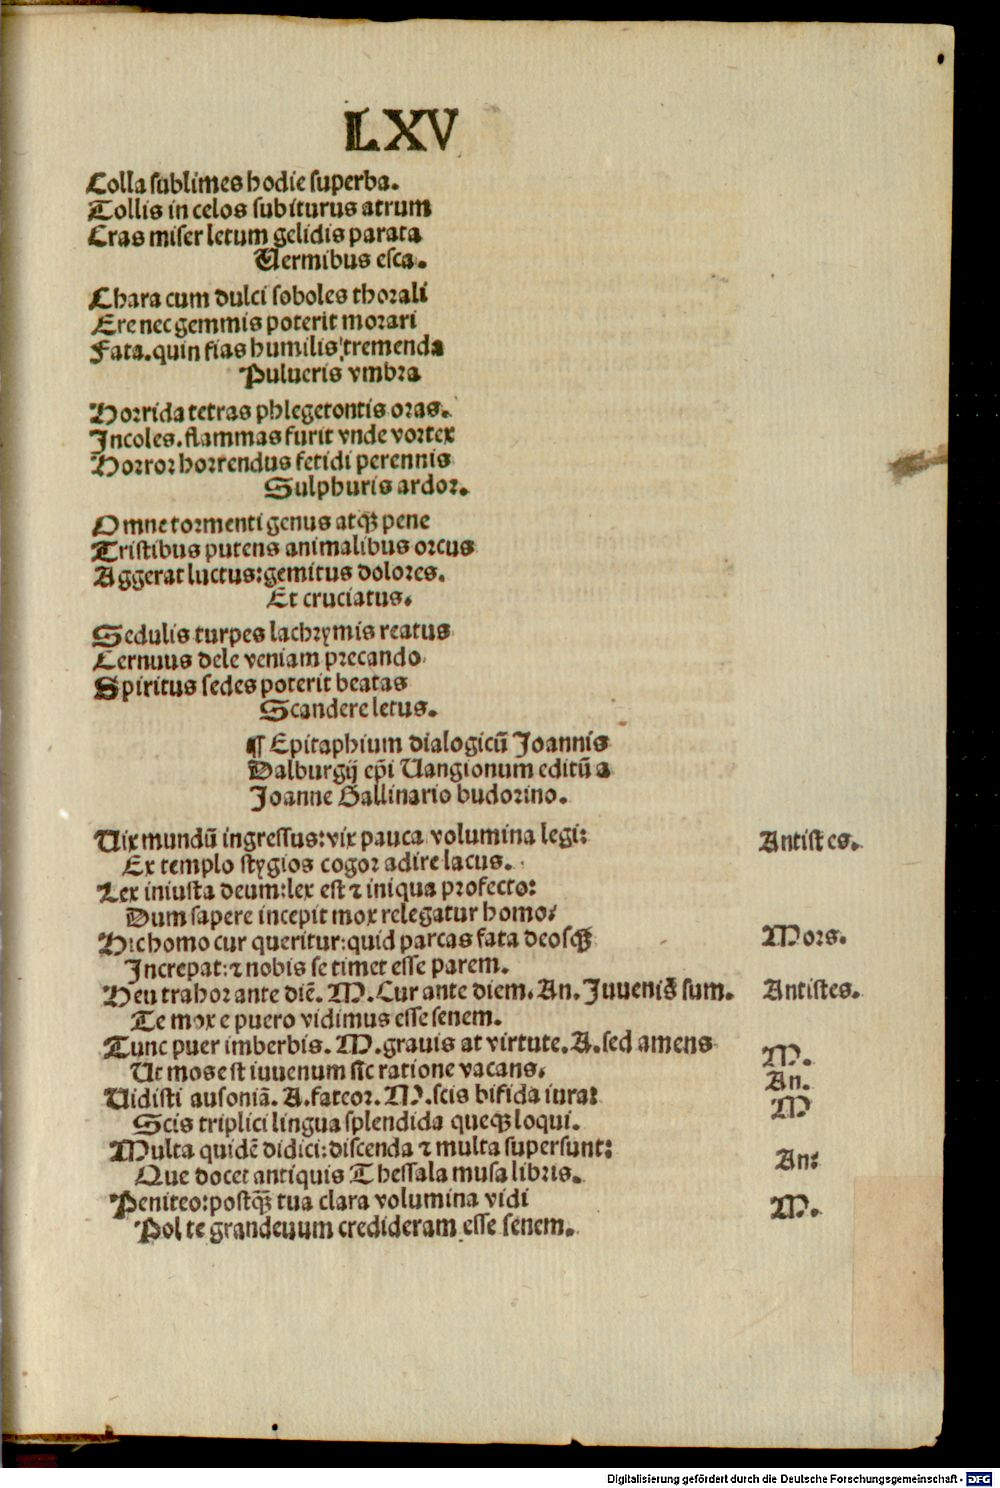 LXV
Colla sublimes hodie superba.
Tollis in celos subiturus atrum
Cras miser letum gelidis parata
Vermibus esca.
Chara cum dulci soboles thorali
Ere nec gemmis poterit morari
Fata. quin fias humilis tremenda
Pulueris vmbra
Horrida tetras phlegetontis oras.
Incoles. flammas furit vnde vortex
Horror horrendus fetidi perennis
Sulphuris ardor.
Omne tormenti genus atqꝫ pene
Tristibus putens animalibus orcus
Aggerat luctus: gemitus dolores.
Et cruciatus.
Sedulis turpes lachrymis reatus
Cernuus dele veniam precando
Spiritus sedes poterit beatas
Scandere letus.
¶ Epitaphium dialogicū Joannis
Dalburgij ep̄i Uangionum editū a
Joanne Gallinario budorino.
Uix mundū ingressus: vix pauca volumina legi: Antistes.
Ex templo stygios cogor adire lacus.
Lex iniusta deum: lex est ⁊ iniqua profecto:
Dum sapere incepit mox relegatur homo:
Hic homo cur queritur: quid parcas fata deosqꝫ Mors.
Increpat: ⁊ nobis se timet esse parem.
Heu trahor ante diē. M. Cur ante diem. An. Juuenis sum. Antistes.
Te mox e puero vidimus esse senem.
Tunc puer imberbis. M. grauis at virtute. A. sed amens M.
Ut mos est iuuenum sic ratione vacans. An.
Uidisti ausoniā. A. fateor. M. scis bifida iura: M
Scis triplici lingua splendida queqꝫ loqui.
Multa quidē didici: discenda ⁊ multa supersunt: An:
Que docet antiquis Thessala musa libris.
Peniteo: postqꝫ tua clara volumina vidi M.
Pol te grandeuum credideram esse senem.
Digitalisierung gefördert durch die Deutsche Forschungsgemeinschaft - DFG